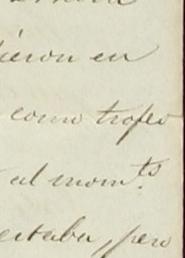 ieron en
como trofeo
al mom.ts
estaba, pero